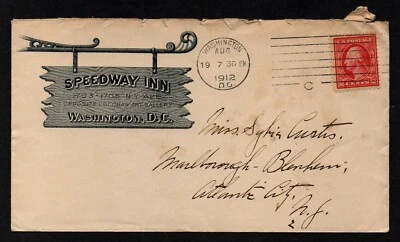 SPEEDWAY INN
1703-1705 N.Y. AVE.
OPPOSITE CORCORAN ART GALLERY
WASHINGTON, D.C.
WASHINGTON
AUG
19 7 30 PM
1912
D.C.
U.S. POSTAGE
2 CENTS 2
Miss Sylvia Curtis.
Marlborough-Blenheim,
Atlantic City,
N.J.